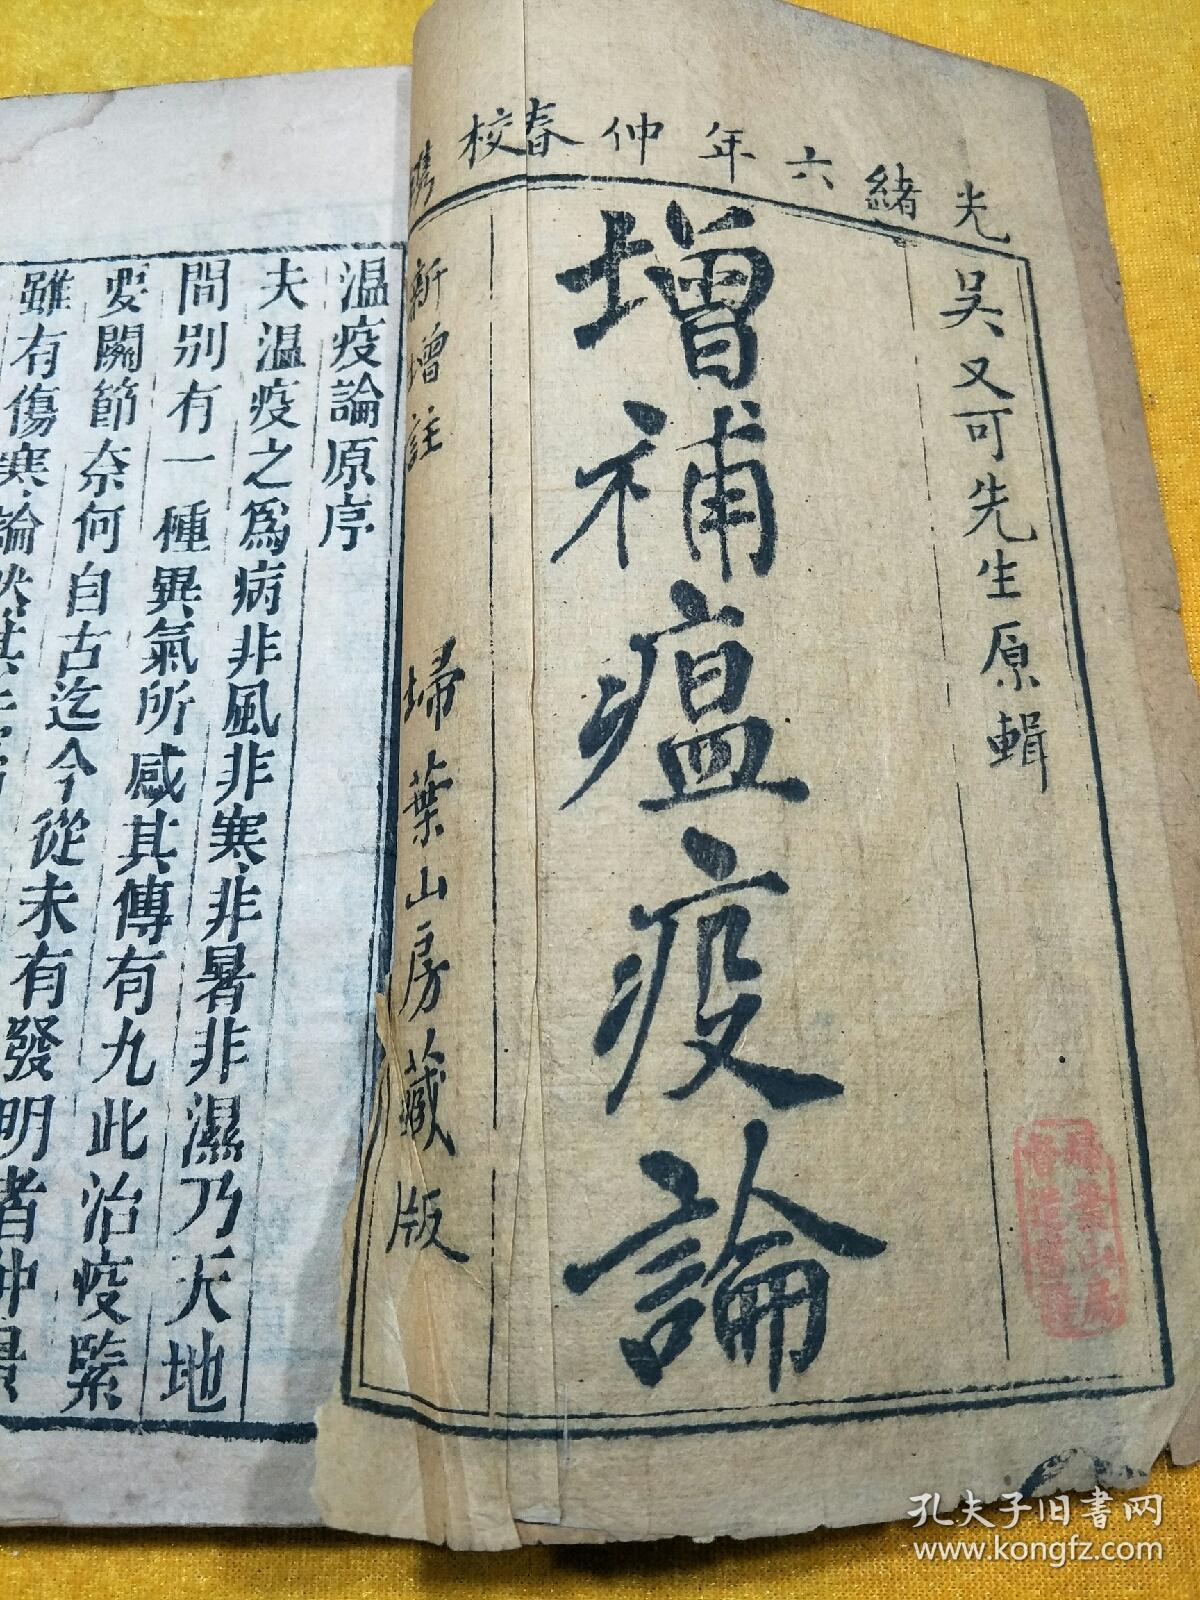 光緒六年仲春校鐫
吳又可先生原輯
增補瘟疫論
新增註
埽葉山房藏版
溫疫論原序
夫溫疫之爲病非風非寒非暑非濕乃天地
間別有一種異氣所感其傳有九此治疫緊
要關節奈何自古迄今從未有發明者仲景
雖有傷寒論然其
孔夫子旧书网
www.kongfz.com